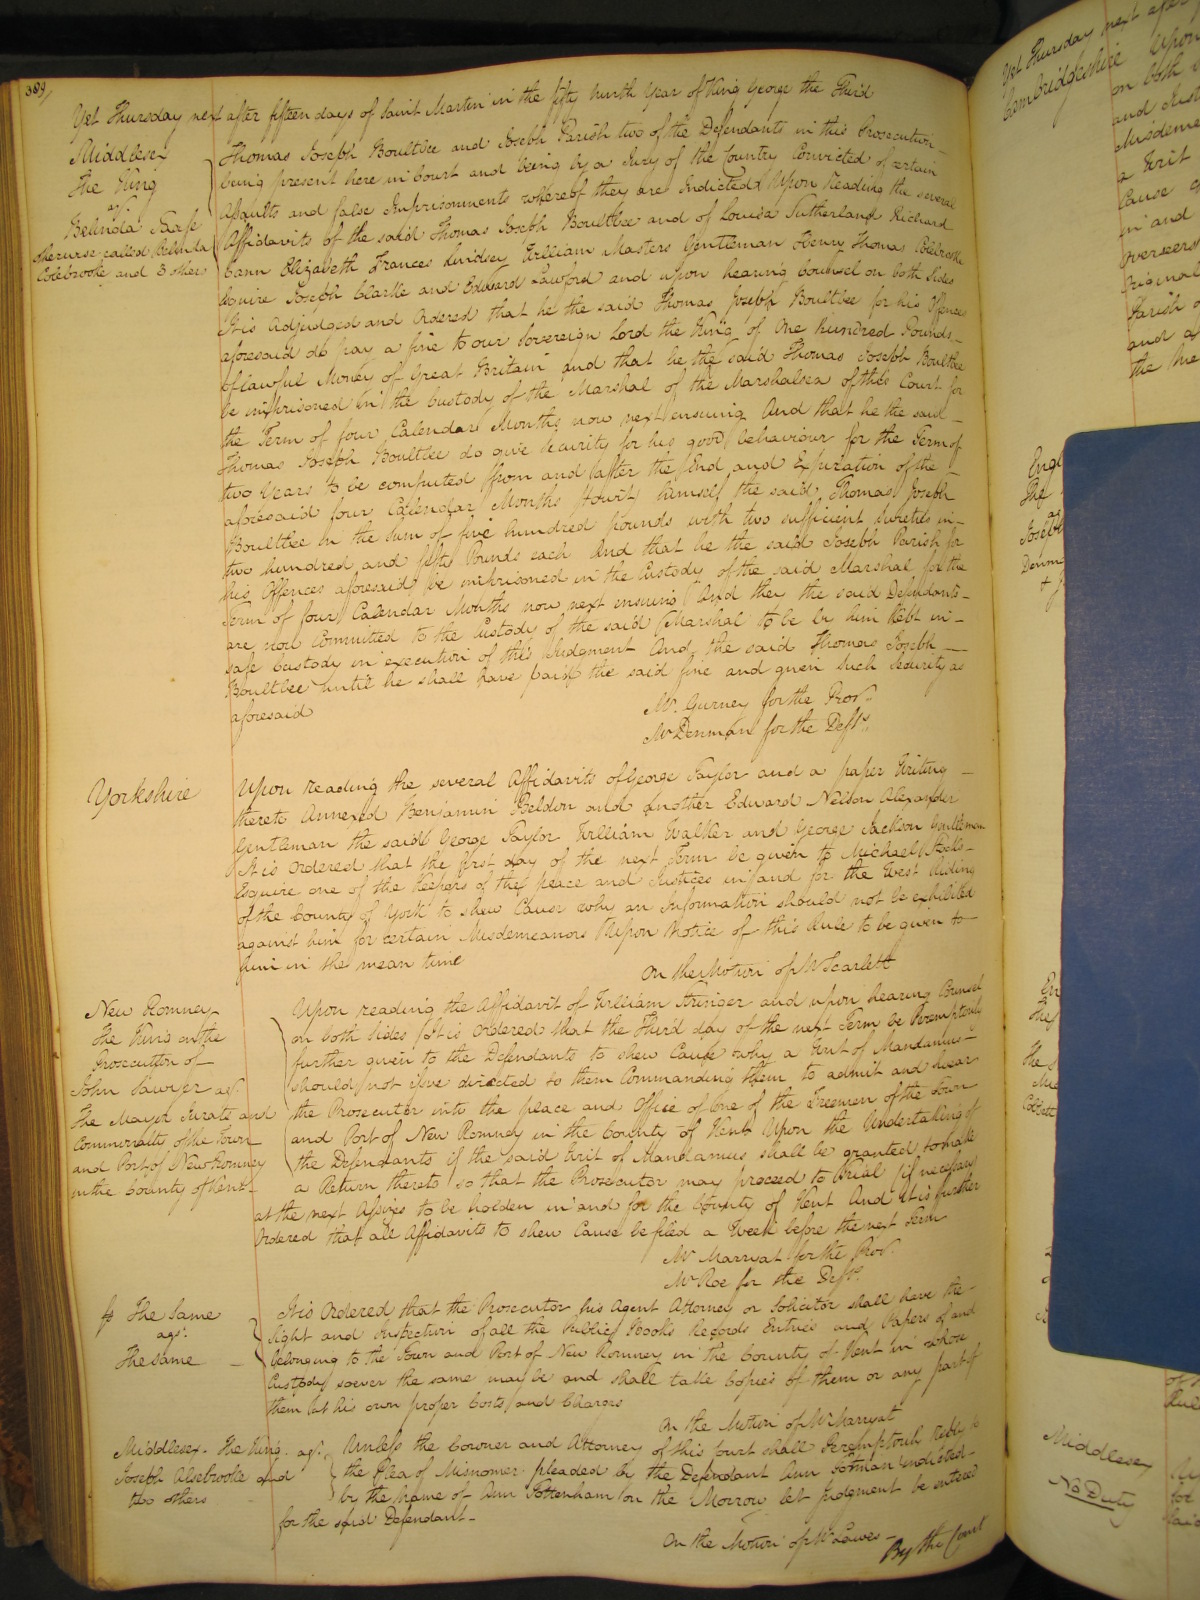 389/
Yet Thursday next after fifteen days of Saint Martin in the fifty ninth Year of King George the Third
Middlesex
The King
agt
Belinda
otherwise called Belinda
Colebrooke and 3 others
Thomas Joseph Boultbee and Joseph Parish two of the Defendants in this Prosecution
being present here in Court and being by a Jury of the Country Convicted of certain
Assaults and false Imprisonments whereof they are Indicted Upon Reading the several
Affidavits of the said Thomas Joseph Boultbee and of Louisa Sutherland Richard
Cann Elizabeth Frances Lindsey William Masters Gentleman Henry Thomas Colebrooke
Esquire Joseph Clarke and Edward Lawford and upon hearing Counsel on both Sides
It is Adjudged and Ordered that he the said Thomas Joseph Boultbee for his Offences
aforesaid do pay a fine to our Sovereign Lord the King of One hundred Pounds
of lawful Money of Great Britain and that he the said Thomas Joseph Boultbee
be imprisoned in the Custody of the Marshal of the Marshalsea of this Court for
the Term of four Calendar Months now next ensuing And that he the said
Thomas Joseph Boultbee do give Security for his good behaviour for the Term of
two Years to be computed from and after the End and Expiration of the
aforesaid four Calendar Months towit himself the said Thomas Joseph
Boultbee in the sum of five hundred pounds with two sufficient sureties in
two hundred and fifty Pounds each And that he the said Joseph Parish for
his Offences aforesaid be imprisoned in the Custody of the said Marshal for the
Term of four Calendar Months now next ensuing And they the said Defendants
are now Committed to the Custody of the said Marshal to be by him kept in
safe Custody in execution of this Judgment And the said Thomas Joseph
Boultbee until he shall have paid the said fine and given such Security as
aforesaid
Mr. Gurney for the Pror.
Mr Denman for the Defts.
Yorkshire
Upon reading the several Affidavits of George Taylor and a paper Writing
thereto Annexed Benjamin Beldon and another Edward Nelson Alexander
Gentleman the said George Taylor William Walker and George Jackson Gentlemen
It is Ordered that the first day of the next Term be given to Michael Stocks
Esquire one of the Keepers of the peace and Justices in and for the West Riding
of the County of York to shew Cause why an Information should not be exhibited
against him for certain Misdemeanors Upon Notice of this Rule to be given to
him in the mean time
On the Motion of Mr Scarlett
New Romney
The King on the
Prosecution of
John Sawyer agt.
The Mayor Jurats and
Commonalty of the Town
and Port of New Romney
in the County of Kent
Upon reading the Affidavit of William Stringer and upon hearing Counsel
on both sides It is Ordered that the Third day of the next Term be Peremptorily
further given to the Defendants to shew Cause why a Writ of Mandamus
should not issue directed to them Commanding them to admit and swear
the Prosecutor into the place and Office of one of the Freemen of the Town
and Port of New Romney in the County of Kent Upon the Undertaking of
the Defendants if the said Writ of Mandamus shall be granted to make
a Return thereto so that the Prosecutor may proceed to Trial if necessary
at the next Assizes to be holden in and for the County of Kent And It is further
Ordered that all Affidavits to shew Cause be filed a Week before the next Term
Mr Marryat for the Pror.
Mr Roe for the Defts.
The Same
agt.
The same
It is Ordered that the Prosecutor his Agent Attorney or Solicitor shall have the
sight and Inspection of all the Public Books Records Entries and Papers of and
belonging to the Town and Port of New Romney in the County of Kent in whose
Custody soever the same may be and shall take Copies of them or any part of
them at his own proper Costs and Charges
On the Motion of Mr Marryat
Middlesex. The King agt.
Joseph Alsebrooke and
two others
Unless the Coroner and Attorney of this Court shall Peremptorily reply to
the Plea of Misnomer pleaded by the Defendant Ann Totman indicted
by the Name of Ann Tottenham on the Morrow let Judgment be entered
for the said Defendant
On the Motion of Mr Lawes
By the Court
Yet Thursday next after
Cambridgeshire
Upon
on both
and
Misdeme
a Writ
Cause
in and
Overseers
Original
Parish
and
the
Engl
The
Joseph
Middlesex
No Duty